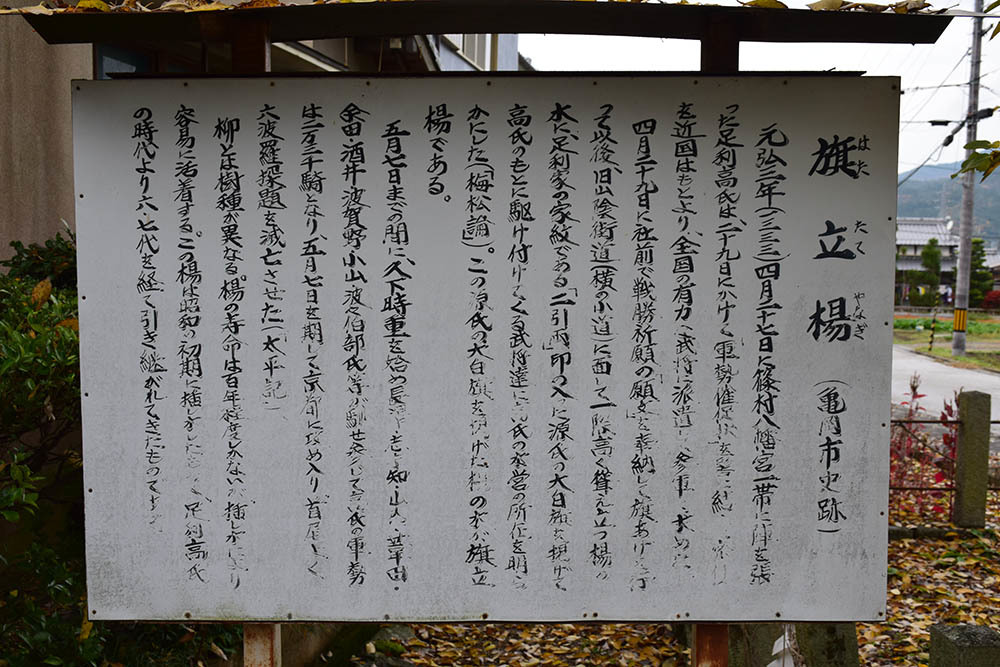 旗立楊（亀岡市史跡）
はた たて やなぎ
元弘三年（一三三三）四月二十七日に篠村八幡宮一帯に陣を張
った足利高氏は、二十九日にかけて軍勢催促状を
を近国はもとより、全国の有力武将に派遣し、参軍を求め
四月二十九日に社前で戦勝祈願の願文を奉納して旗あげを行
って以後、旧山陰街道（横の小道）に面して一際高く聳え立つ楊の
木に、足利家の家紋である「二引両」印入りに源氏の大白旗を掲げて
高氏のもとに駆け付けてくる武将達に高氏の本営の所在を明ら
かにした（「梅松論」）。この源氏の大白旗を掲げた楊の木が旗立
楊である。
五月七日までの間に、久下時重を始め長澤、志宇知、山内、葦田、
余田、酒井、波賀野、小山、波々伯部氏等が馳せ参じて高氏の軍勢
は二万三千騎となり、五月七日を期して京都に攻め入り、首尾よく
六波羅探題を滅亡させた（「太平記」）
柳とは樹種が異なる。楊の寿命は百年程度しかないが挿し木により
容易に活着する。この楊は昭和の初期に挿し木したもので、足利高氏
の時代より六・七代を経て引き継がれてきたものです。